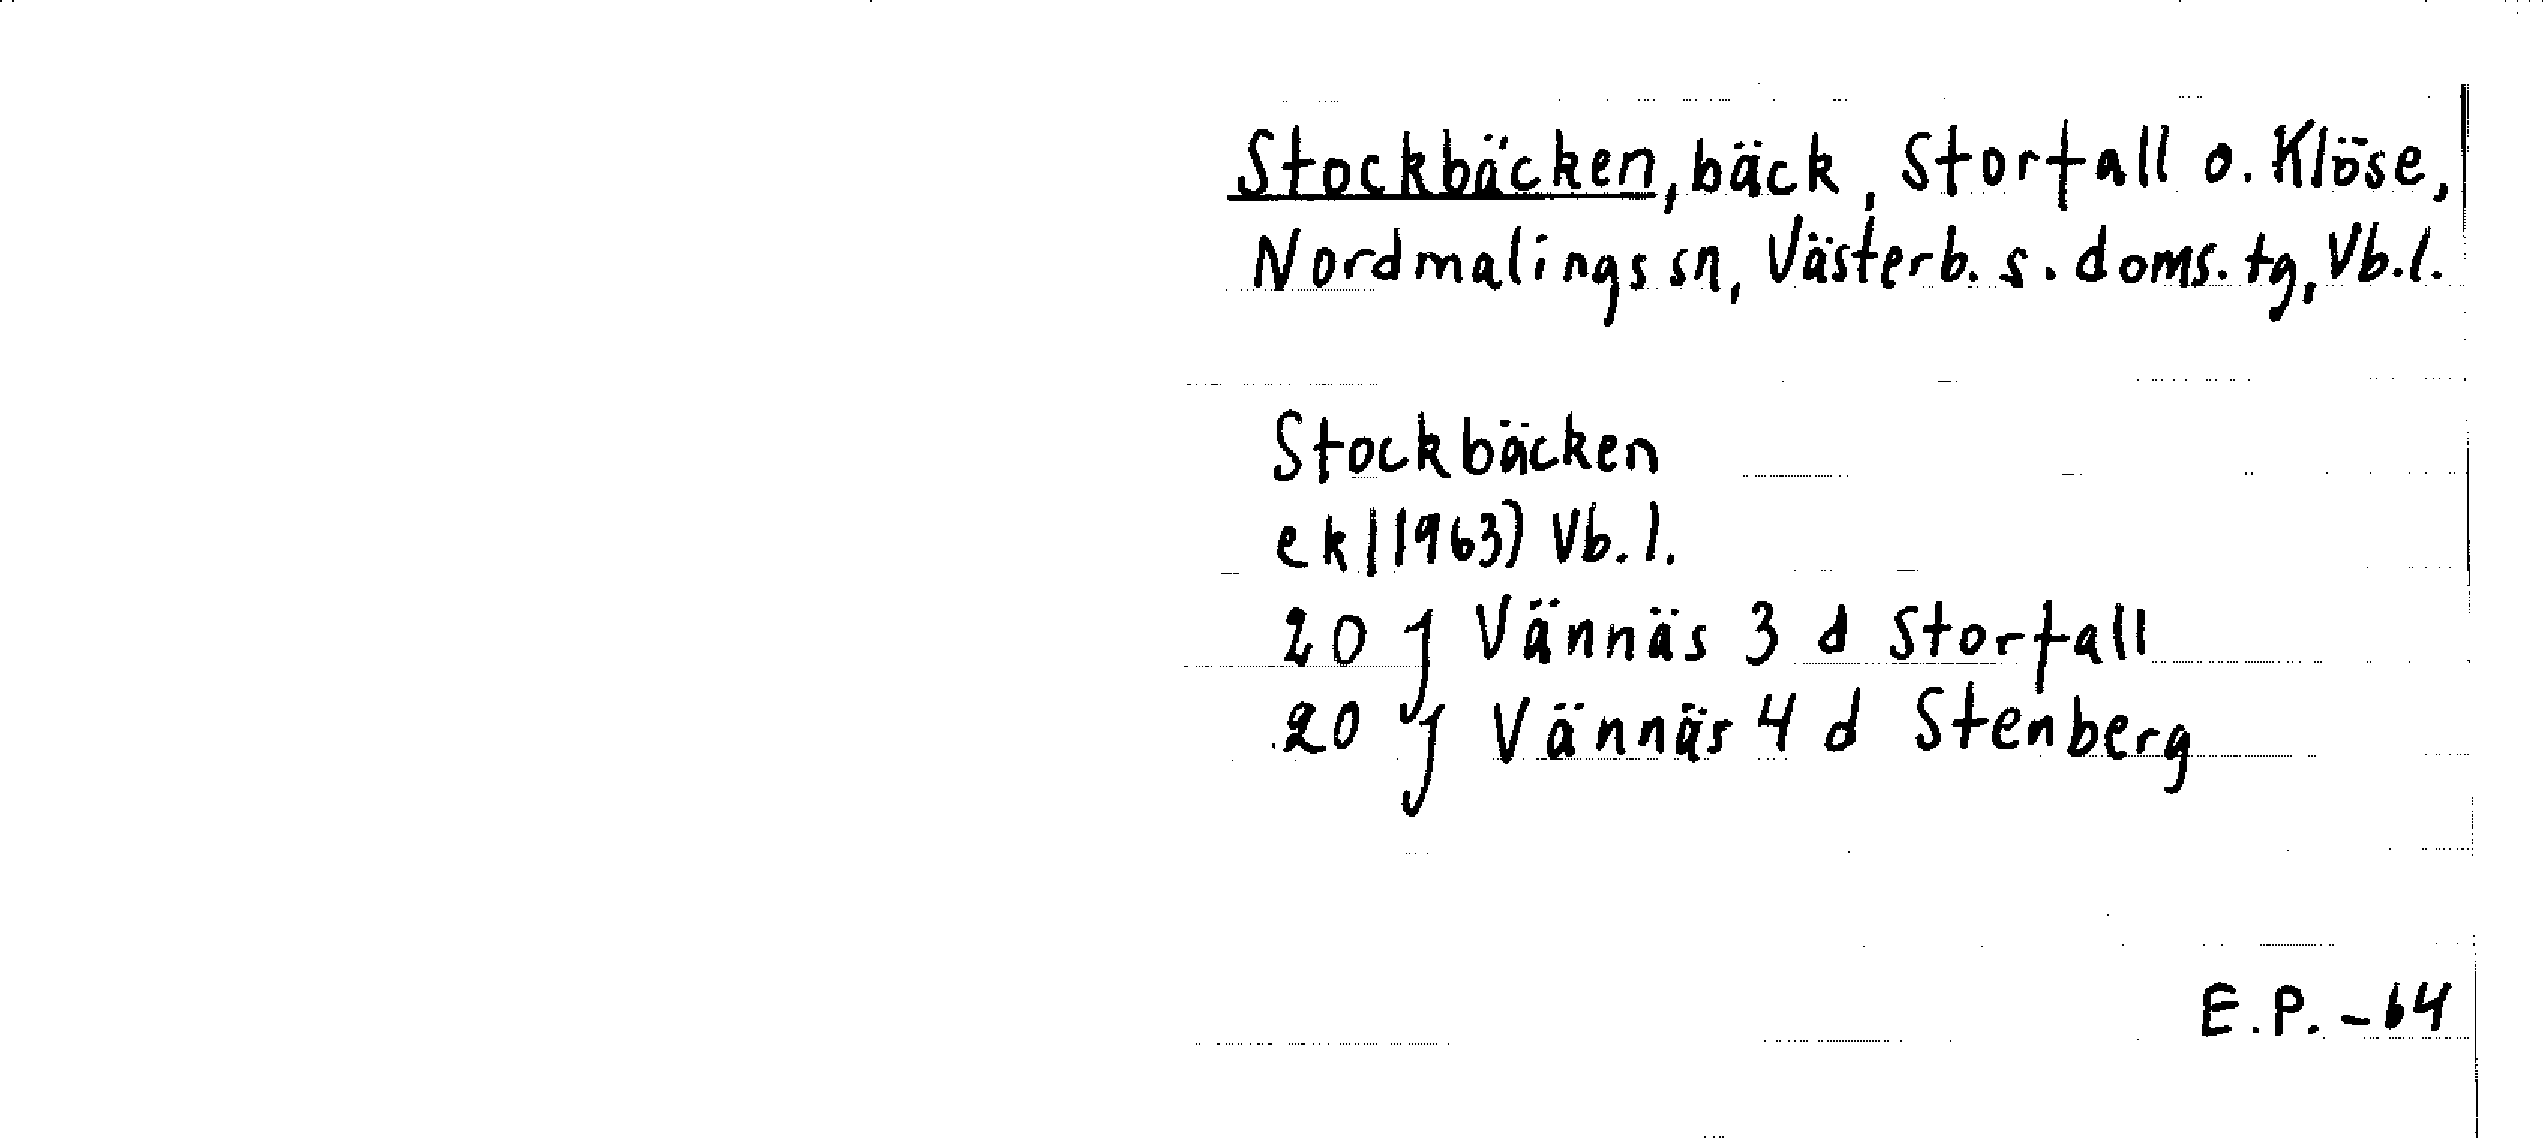 Stockbäcken, bäck, Storfall o. Klöse,
Nordmalings sn, Västerb. s. doms. tg, Vb.l.
Stockbäcken
ek (1963) Vb.l.
20 J Vännäs 3 d Storfall
20 J Vännäs 4 d Stenberg
E.P. - 64